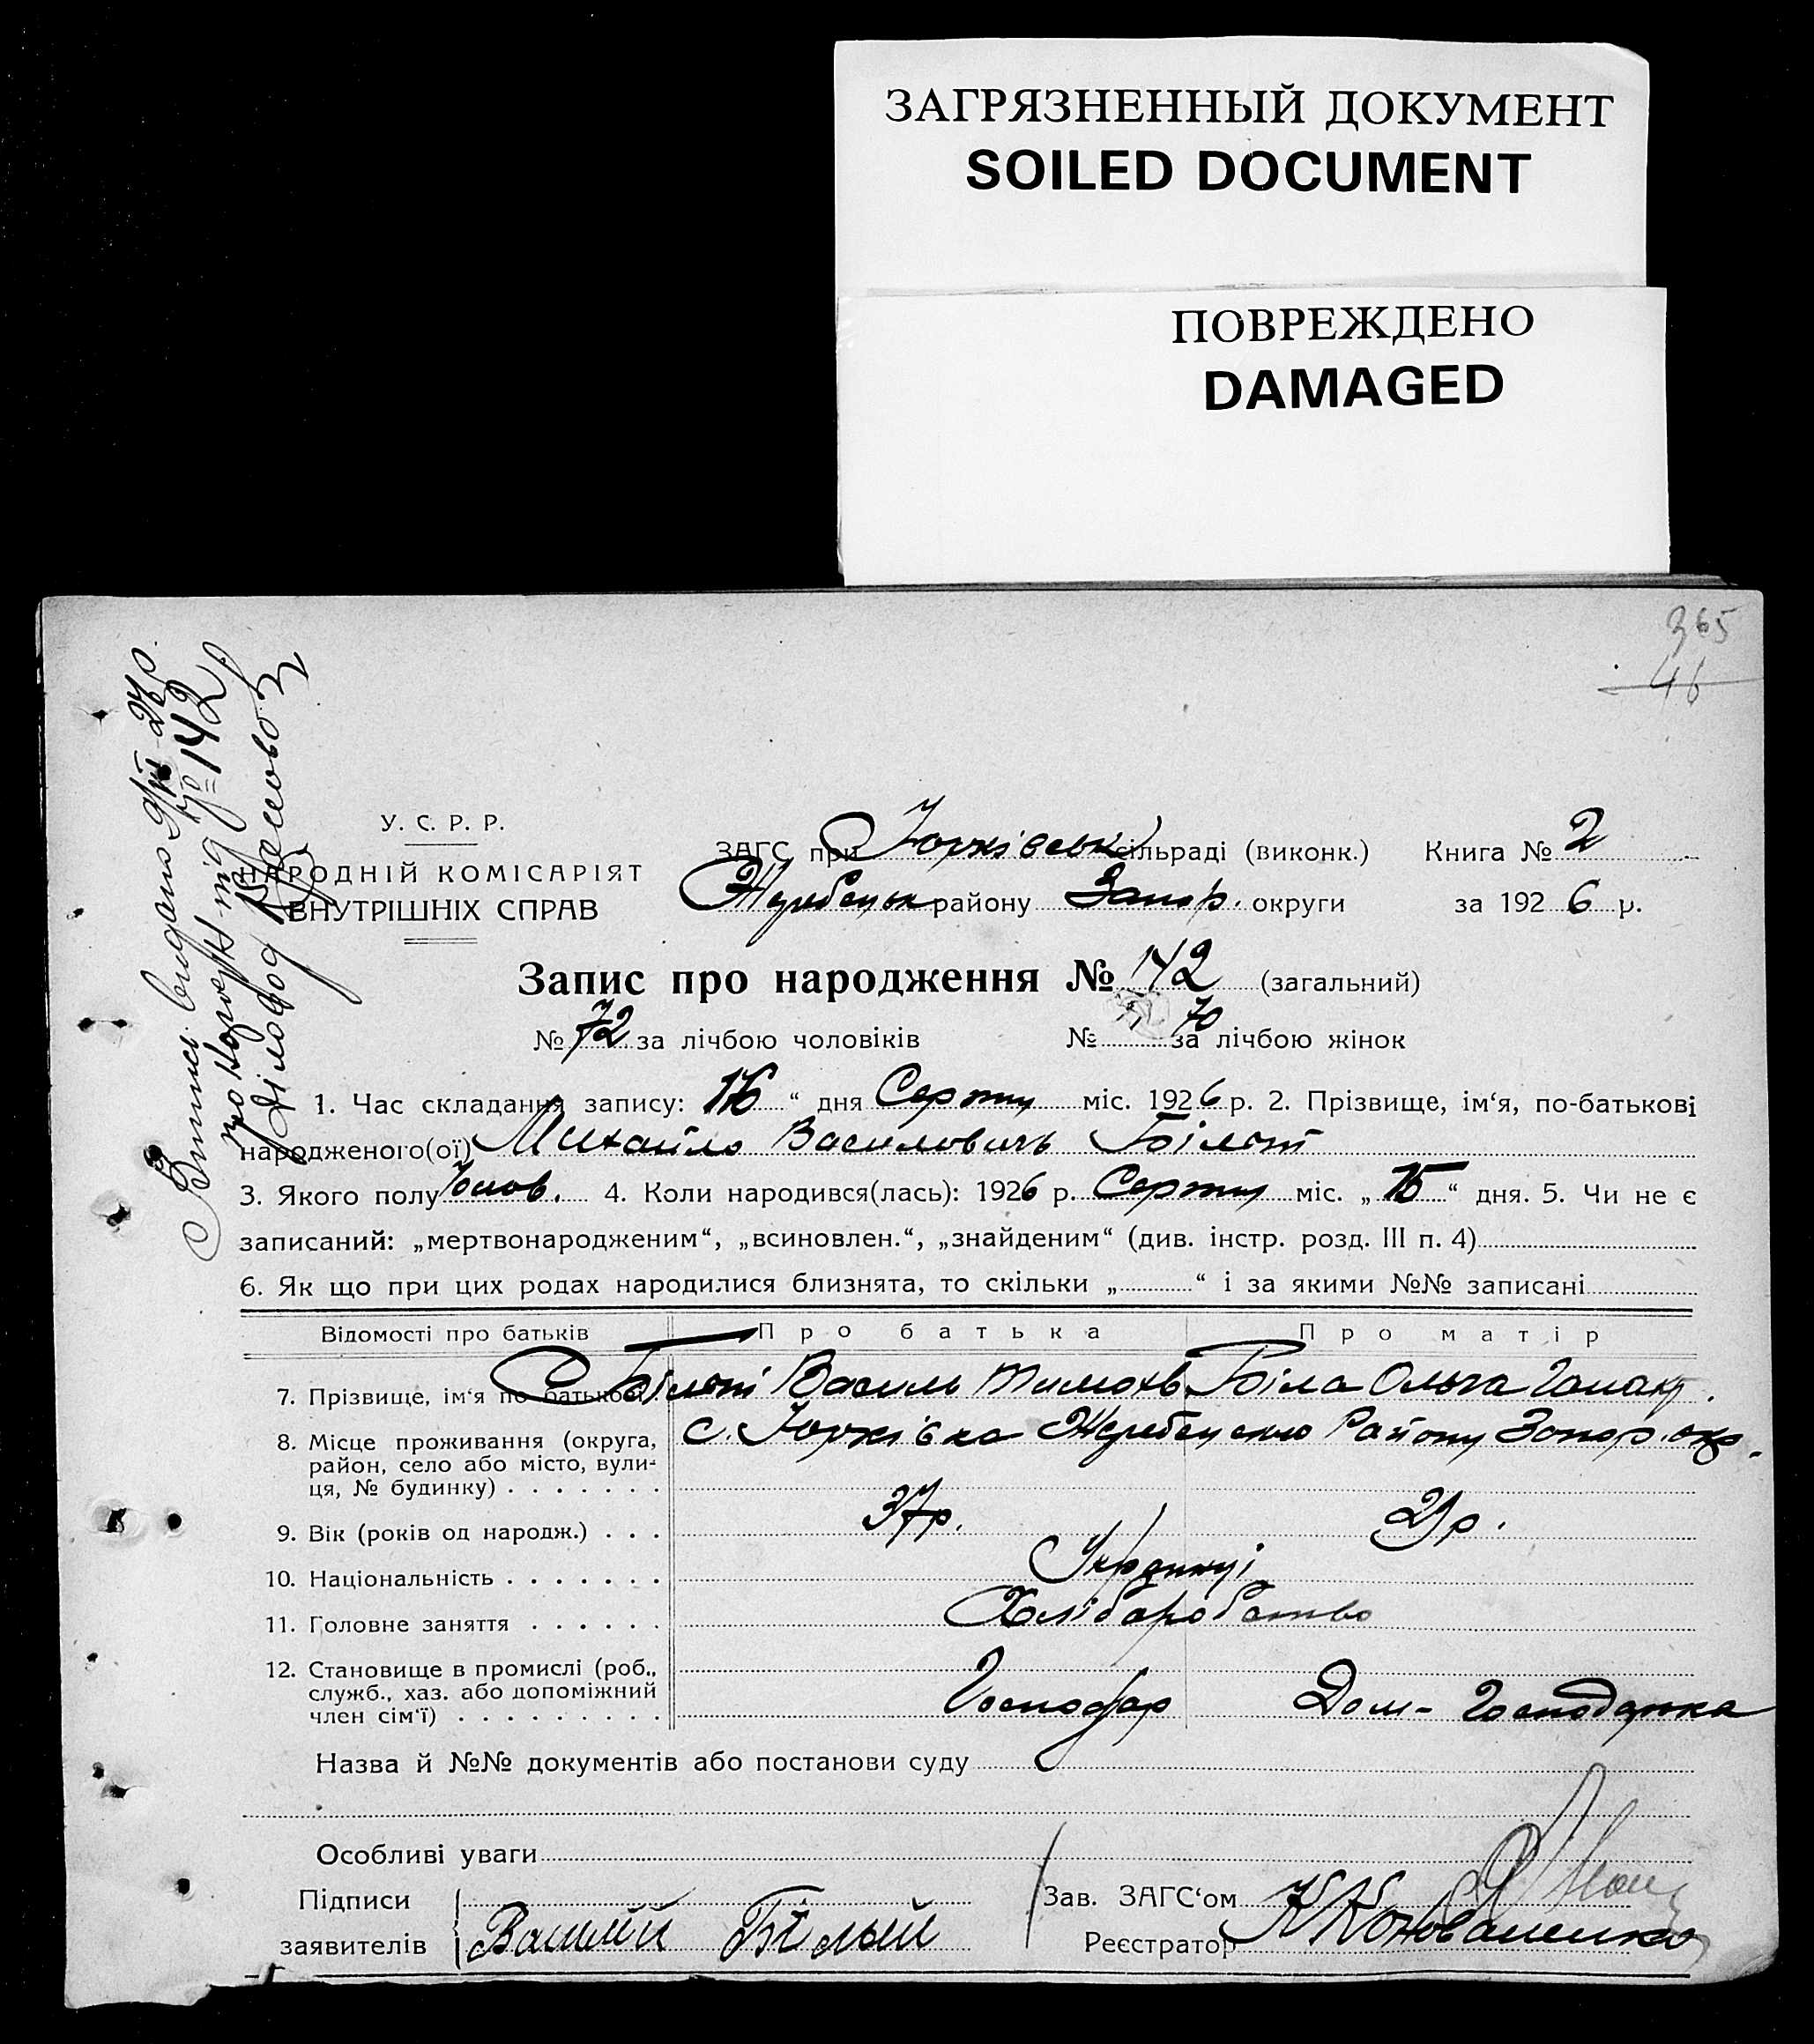 ЗАГРЯЗНЕННЫЙ ДОКУМЕНТ
SOILED DOCUMENT
ПОВРЕЖДЕНО
DAMAGED
365
46
Виписі видано
про народж. під № 142
Діловод
У. С. Р. Р.
НАРОДНІЙ КОМІСАРІЯТ
ВНУТРІШНІХ СПРАВ
ЗАГС при Юрківськ сільраді (виконк.) Книга № 2
Жеребецьк району Запор. округи за 1926 р.
Запис про народження № 142 (загальний)
№ 72 за лічбою чоловіків № 70 за лічбою жінок
1. Час складання запису: 16 “ дня Серпня міс. 1926 р. 2. Прізвище, ім‘я, по-батькові
народженого(ої) Михайло Василовичь Білий
3. Якого полу Чолов. 4. Коли народився(лась): 1926 р. Серпня міс. „ 15 “ дня. 5. Чи не є
записаний: „мертвонародженим“, „всиновлен.“, „знайденим“ (див. інстр. розд. III п. 4)
6. Як що при цих родах народилися близнята, то скільки „ “ і за якими №№ записані
Відомості про батьків Про батька Про матір
7. Прізвище, ім‘я по батькові Білий Василь Тимохв. Біла Ольга
8. Місце проживання (округа, с. Юрківка Жеребецького Району Запор. окр.
район, село або місто, вули-
ця, № будинку)
9. Вік (років од народж.) 37р. р.
10. Національність Українці
11. Головне заняття Хліборобство
12. Становище в промислі (роб., служб., хаз. або допоміжний
член сім‘ї) Господар Дом- Господарка
Назва й №№ документів або постанови суду
Особливі уваги
Підписи Зав. ЗАГС‘ом
заявителів Василий Білый Реєстратор Коноваленко